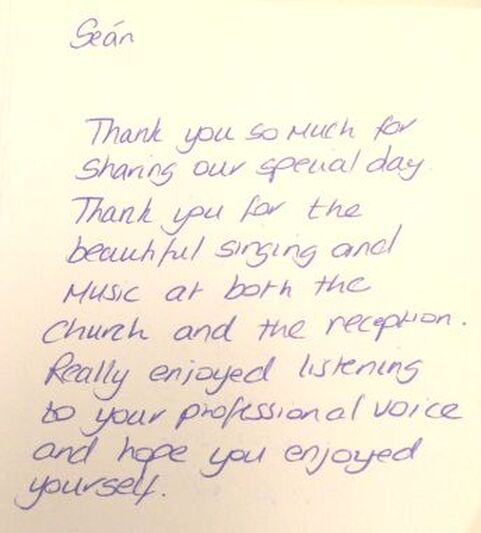 Seán
Thank you so much for
sharing our special day.
Thank you for the
beautiful singing and
Music at both the
Church and the reception.
Really enjoyed listening
to your professional voice
and hope you enjoyed
yourself.